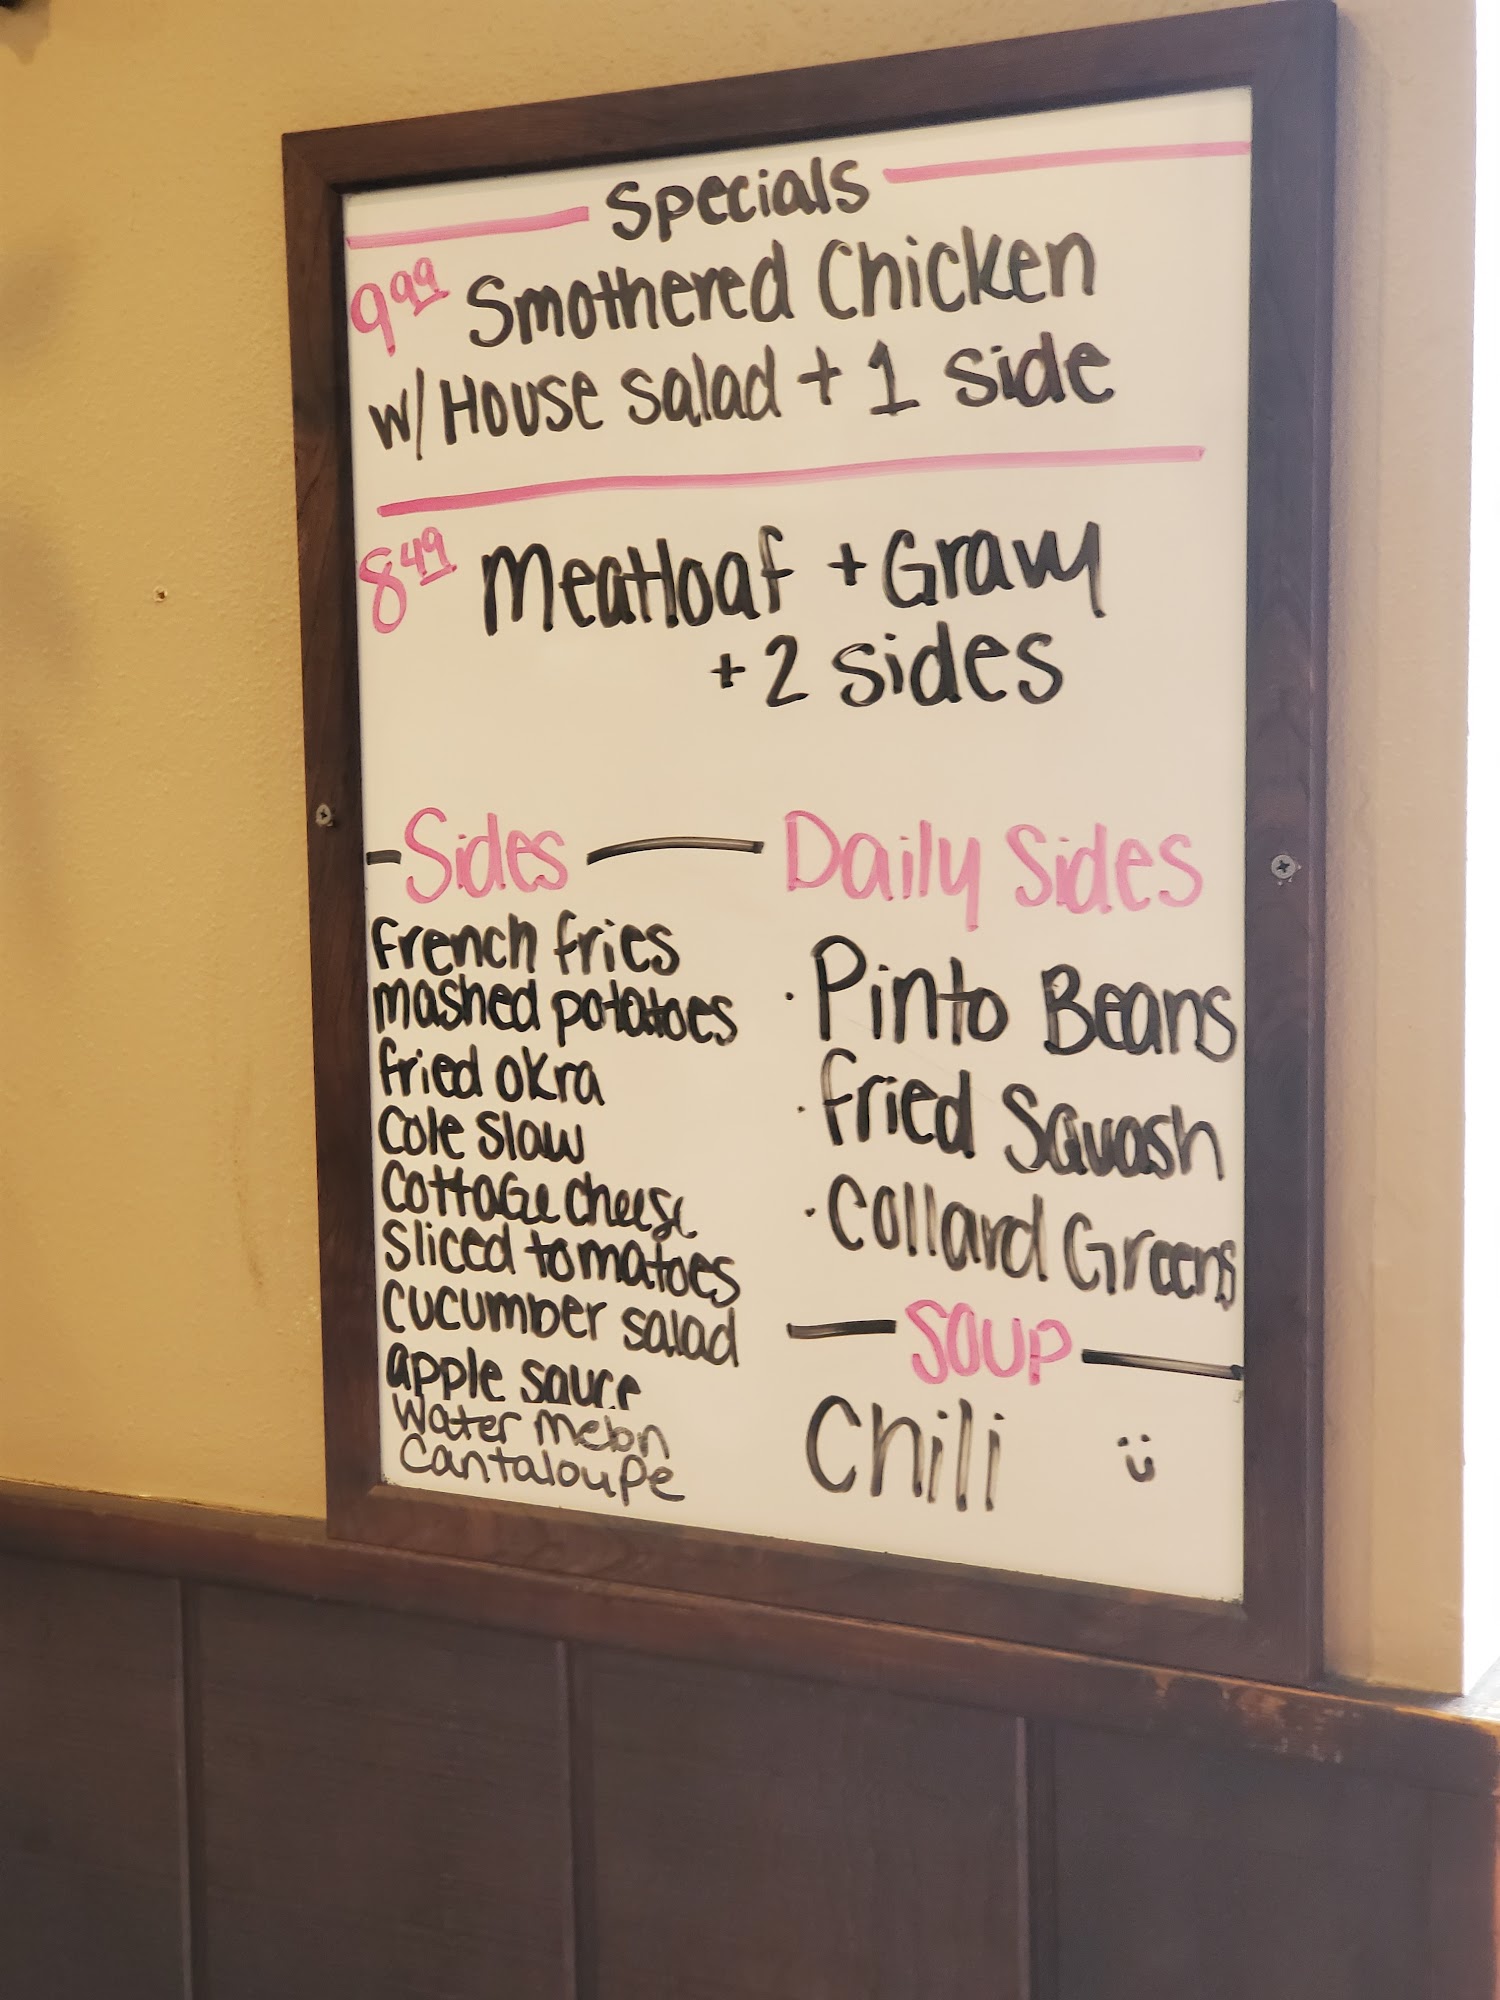 Specials
9.99 Smothered Chicken
w/ House salad + 1 side
8.49 Meatloaf + Gravy
+ 2 sides
Sides
French fries
mashed potatoes
fried okra
Cole slaw
Cottage cheese
Sliced tomatoes
cucumber salad
apple sauce
Water melon
Cantaloupe
Daily Sides
· Pinto Beans
· Fried Squash
· Collard Greens
Soup
Chili :)